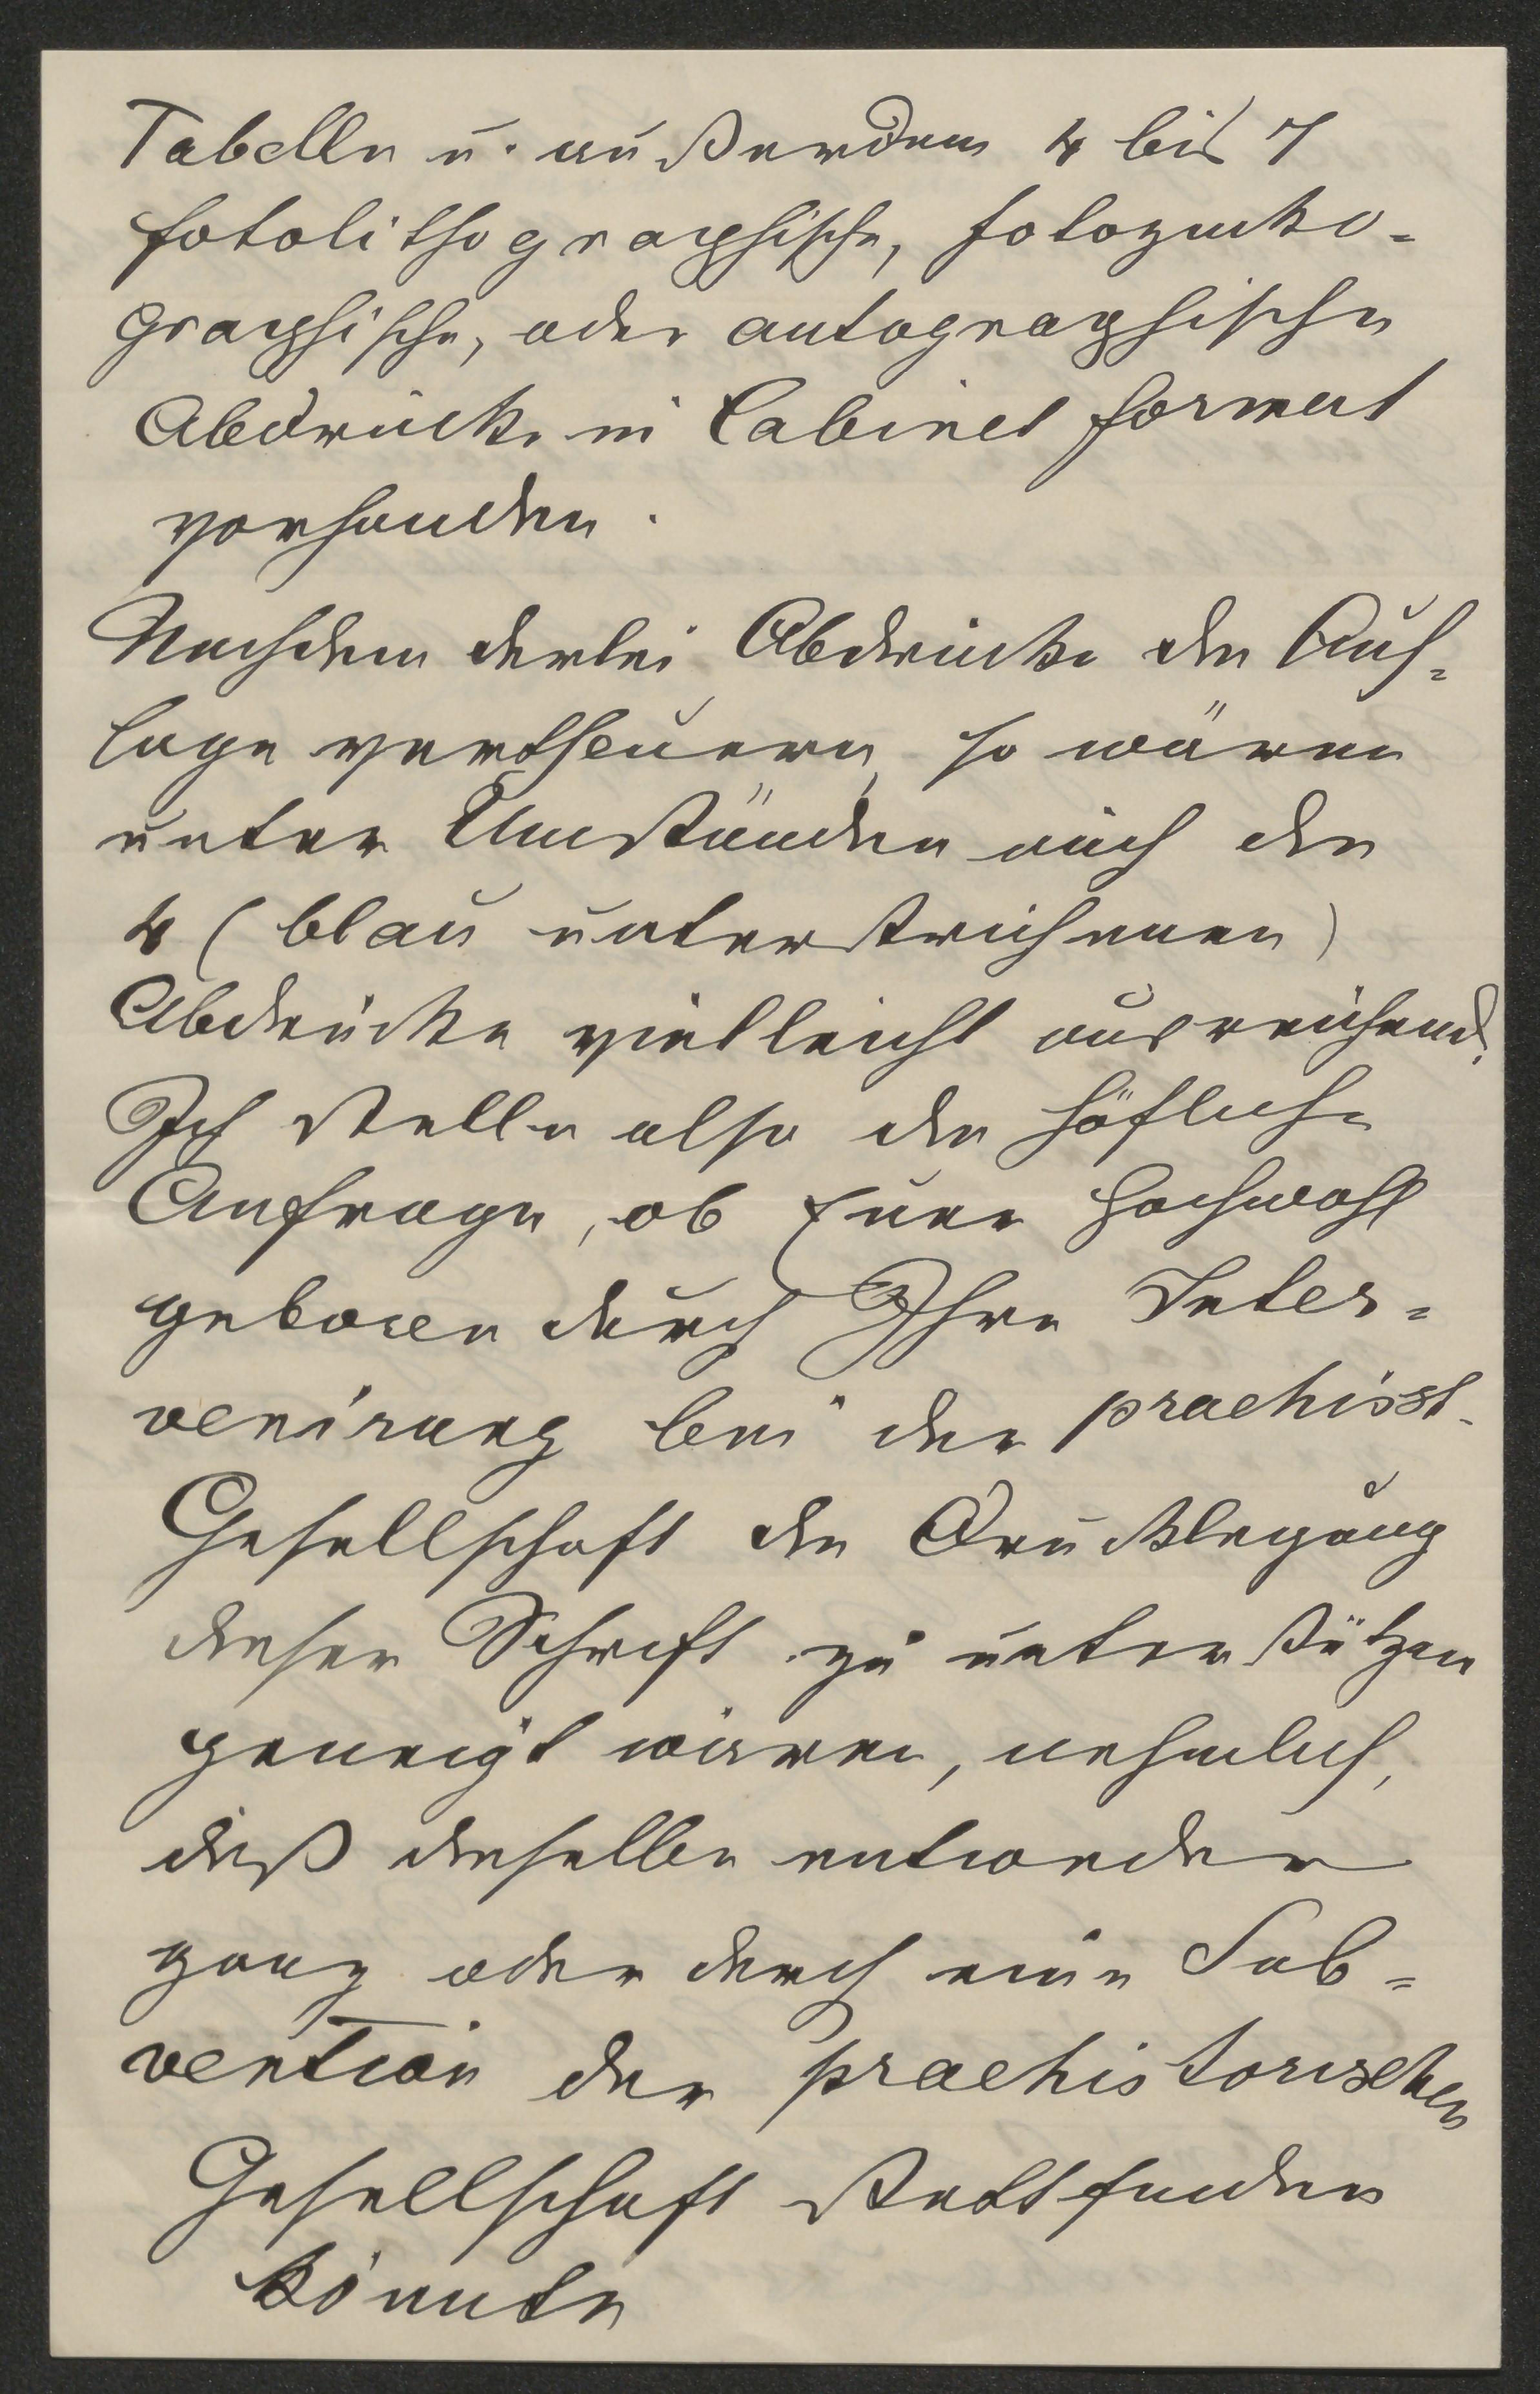 Tabelle u. außerdem 4 bis 7
fotolithographische, fotozinko-
graphische, oder autographische
Abdrücke in Cabinet format
vorhanden.
Nachdem derlei Abdrücke die Auf-
lage vertheuern, so wären
unter Umständen auch die
4 (blau unterstrichenen)
Abdrücke vielleicht ausreichend.
Ich stelle also die höfliche
Anfrage, ob Euer Hochwohl
geboren durch Ihre Inter-
venirung bei der praehisst.
Gesellschaft die Drucklegung
dieser Schrift zu unterstützen
geneigt wären, nehmlich,
daß dieselbe entweder
ganz oder durch eine Sub-
vention der praehistorischen
Gesellschaft stattfinden
könnte